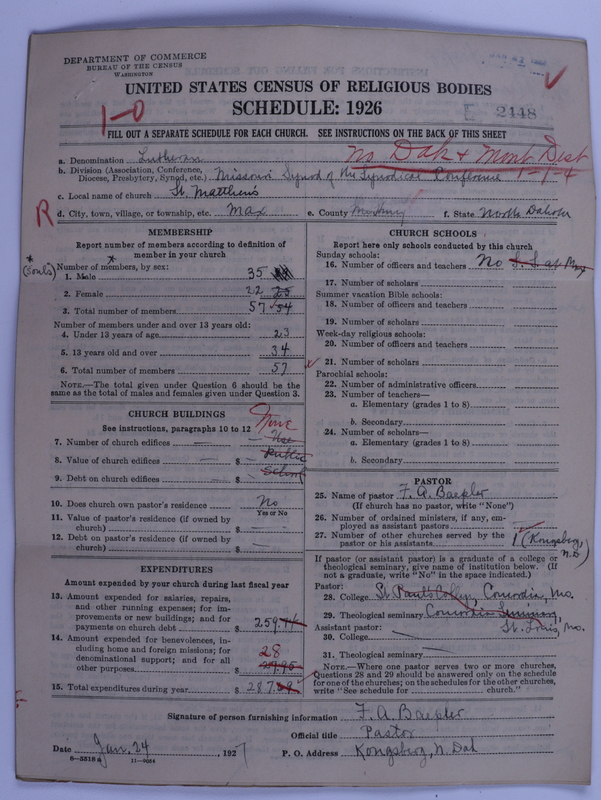 DEPARTMENT OF COMMERCE
BUREAU OF THE CENSUS
WASHINGTON
UNITED STATES CENSUS OF RELIGIOUS BODIES
SCHEDULE: 1926
1-0
2448
FILL OUT A SEPARATE SCHEDULE FOR EACH CHURCH. SEE INSTRUCTIONS ON THE BACK OF THIS SHEET
No Dak & Mont Dist
1-7-4
a. Denomination Lutheran
b. Division (Association, Conference, Diocese, Presbytery, Synod, etc.) Missouri Synod of the Synodical Conference
c. Local name of church St. Matthews
R
d. City, town, village, or township, etc. Max e. County McHenry f. State North Dakota
MEMBERSHIP
Report number of members according to definition of
member in your church
* (Souls)
Number of members, by sex: *
1. Male 35
2. Female 22 25
3. Total number of members 57 54
Number of members under and over 13 years old:
4. Under 13 years of age 23
5. 13 years old and over 34
6. Total number of members 57
NOTE.—The total given under Question 6 should be the
same as the total of males and females given under Question 3.
CHURCH BUILDINGS
See instructions, paragraphs 10 to 12
None
7. Number of church edifices — Use
8. Value of church edifices — $ Public
9. Debt on church edifices — $ School
10. Does church own pastor's residence No
Yes or No
11. Value of pastor's residence (if owned by
church) $ —
12. Debt on pastor's residence (if owned by
church) $ —
EXPENDITURES
Amount expended by your church during last fiscal year
13. Amount expended for salaries, repairs,
and other running expenses; for im-
provements or new buildings; and for
payments on church debt $ 259.
14. Amount expended for benevolences, in-
cluding home and foreign missions; for
denominational support; and for all
other purposes $ 28
15. Total expenditures during year $ 287.
CHURCH SCHOOLS
Report here only schools conducted by this church
Sunday schools:
16. Number of officers and teachers No S. S. at Max
17. Number of scholars
Summer vacation Bible schools:
18. Number of officers and teachers
19. Number of scholars
Week-day religious schools:
20. Number of officers and teachers
21. Number of scholars
Parochial schools:
22. Number of administrative officers
23. Number of teachers—
a. Elementary (grades 1 to 8)
b. Secondary
24. Number of scholars—
a. Elementary (grades 1 to 8)
b. Secondary
PASTOR
25. Name of pastor F. A. Baepler
(If church has no pastor, write "None")
26. Number of ordained ministers, if any, em-
ployed as assistant pastors
27. Number of other churches served by the
pastor or his assistants 1 (Kongsberg, N.D)
If pastor (or assistant pastor) is a graduate of a college or
theological seminary, give name of institution below. (If
not a graduate, write "No" in the space indicated.)
Pastor:
28. College St. Paul's College, Concordia, Mo.
29. Theological seminary Concordia Seminary,
St. Louis, Mo.
Assistant pastor:
30. College
31. Theological seminary
NOTE.—Where one pastor serves two or more churches,
Questions 28 and 29 should be answered only on the schedule
for one of the churches; on the schedules for the other churches,
write "See schedule for church."
Signature of person furnishing information F. A. Baepler
Official title Pastor
Date Jan. 24, 1927 P. O. Address Kongsberg, N. Dak
8—5518a 11—9054